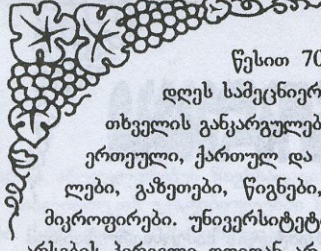 წესით 70
დღეს სამეცნიერ
თხველის განკარგულებ
ერთეული, ქართულ და
ლები, გაზეთები, წიგნები,
მიკროფირები. უნივერსიტეტ
არსების პირველი დღიდან არ